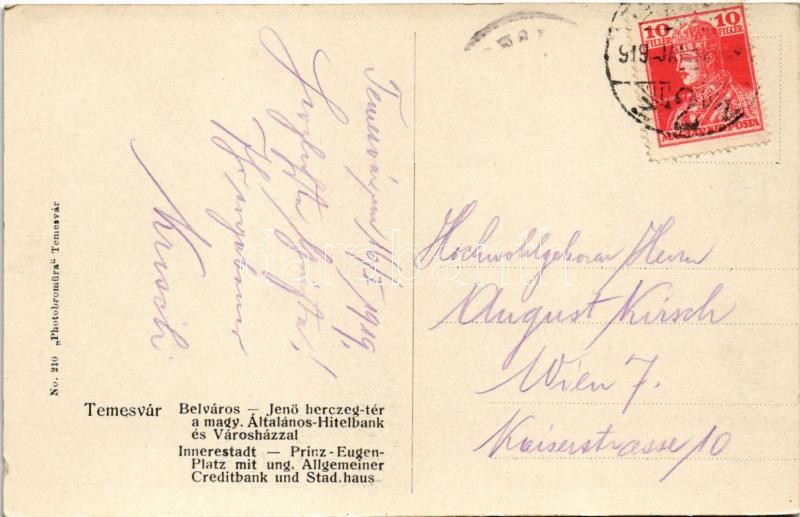 10 FILLÉR 10
919 JAN
MAGYAR KIR. POSTA
Temesvár, am 16/I 1919,
Hochwohlgeboren Herrn
August Kirsch
Wien 7.
Kaiserstrasse 10
No. 210 „Photobromüra" Temesvár
Temesvár
Belváros — Jenö herczeg-tér
a magy. Általános-Hitelbank
és Városházzal
Innerestadt — Prinz-Eugen-
Platz mit ung. Allgemeiner
Creditbank und Stad.haus
darabanth